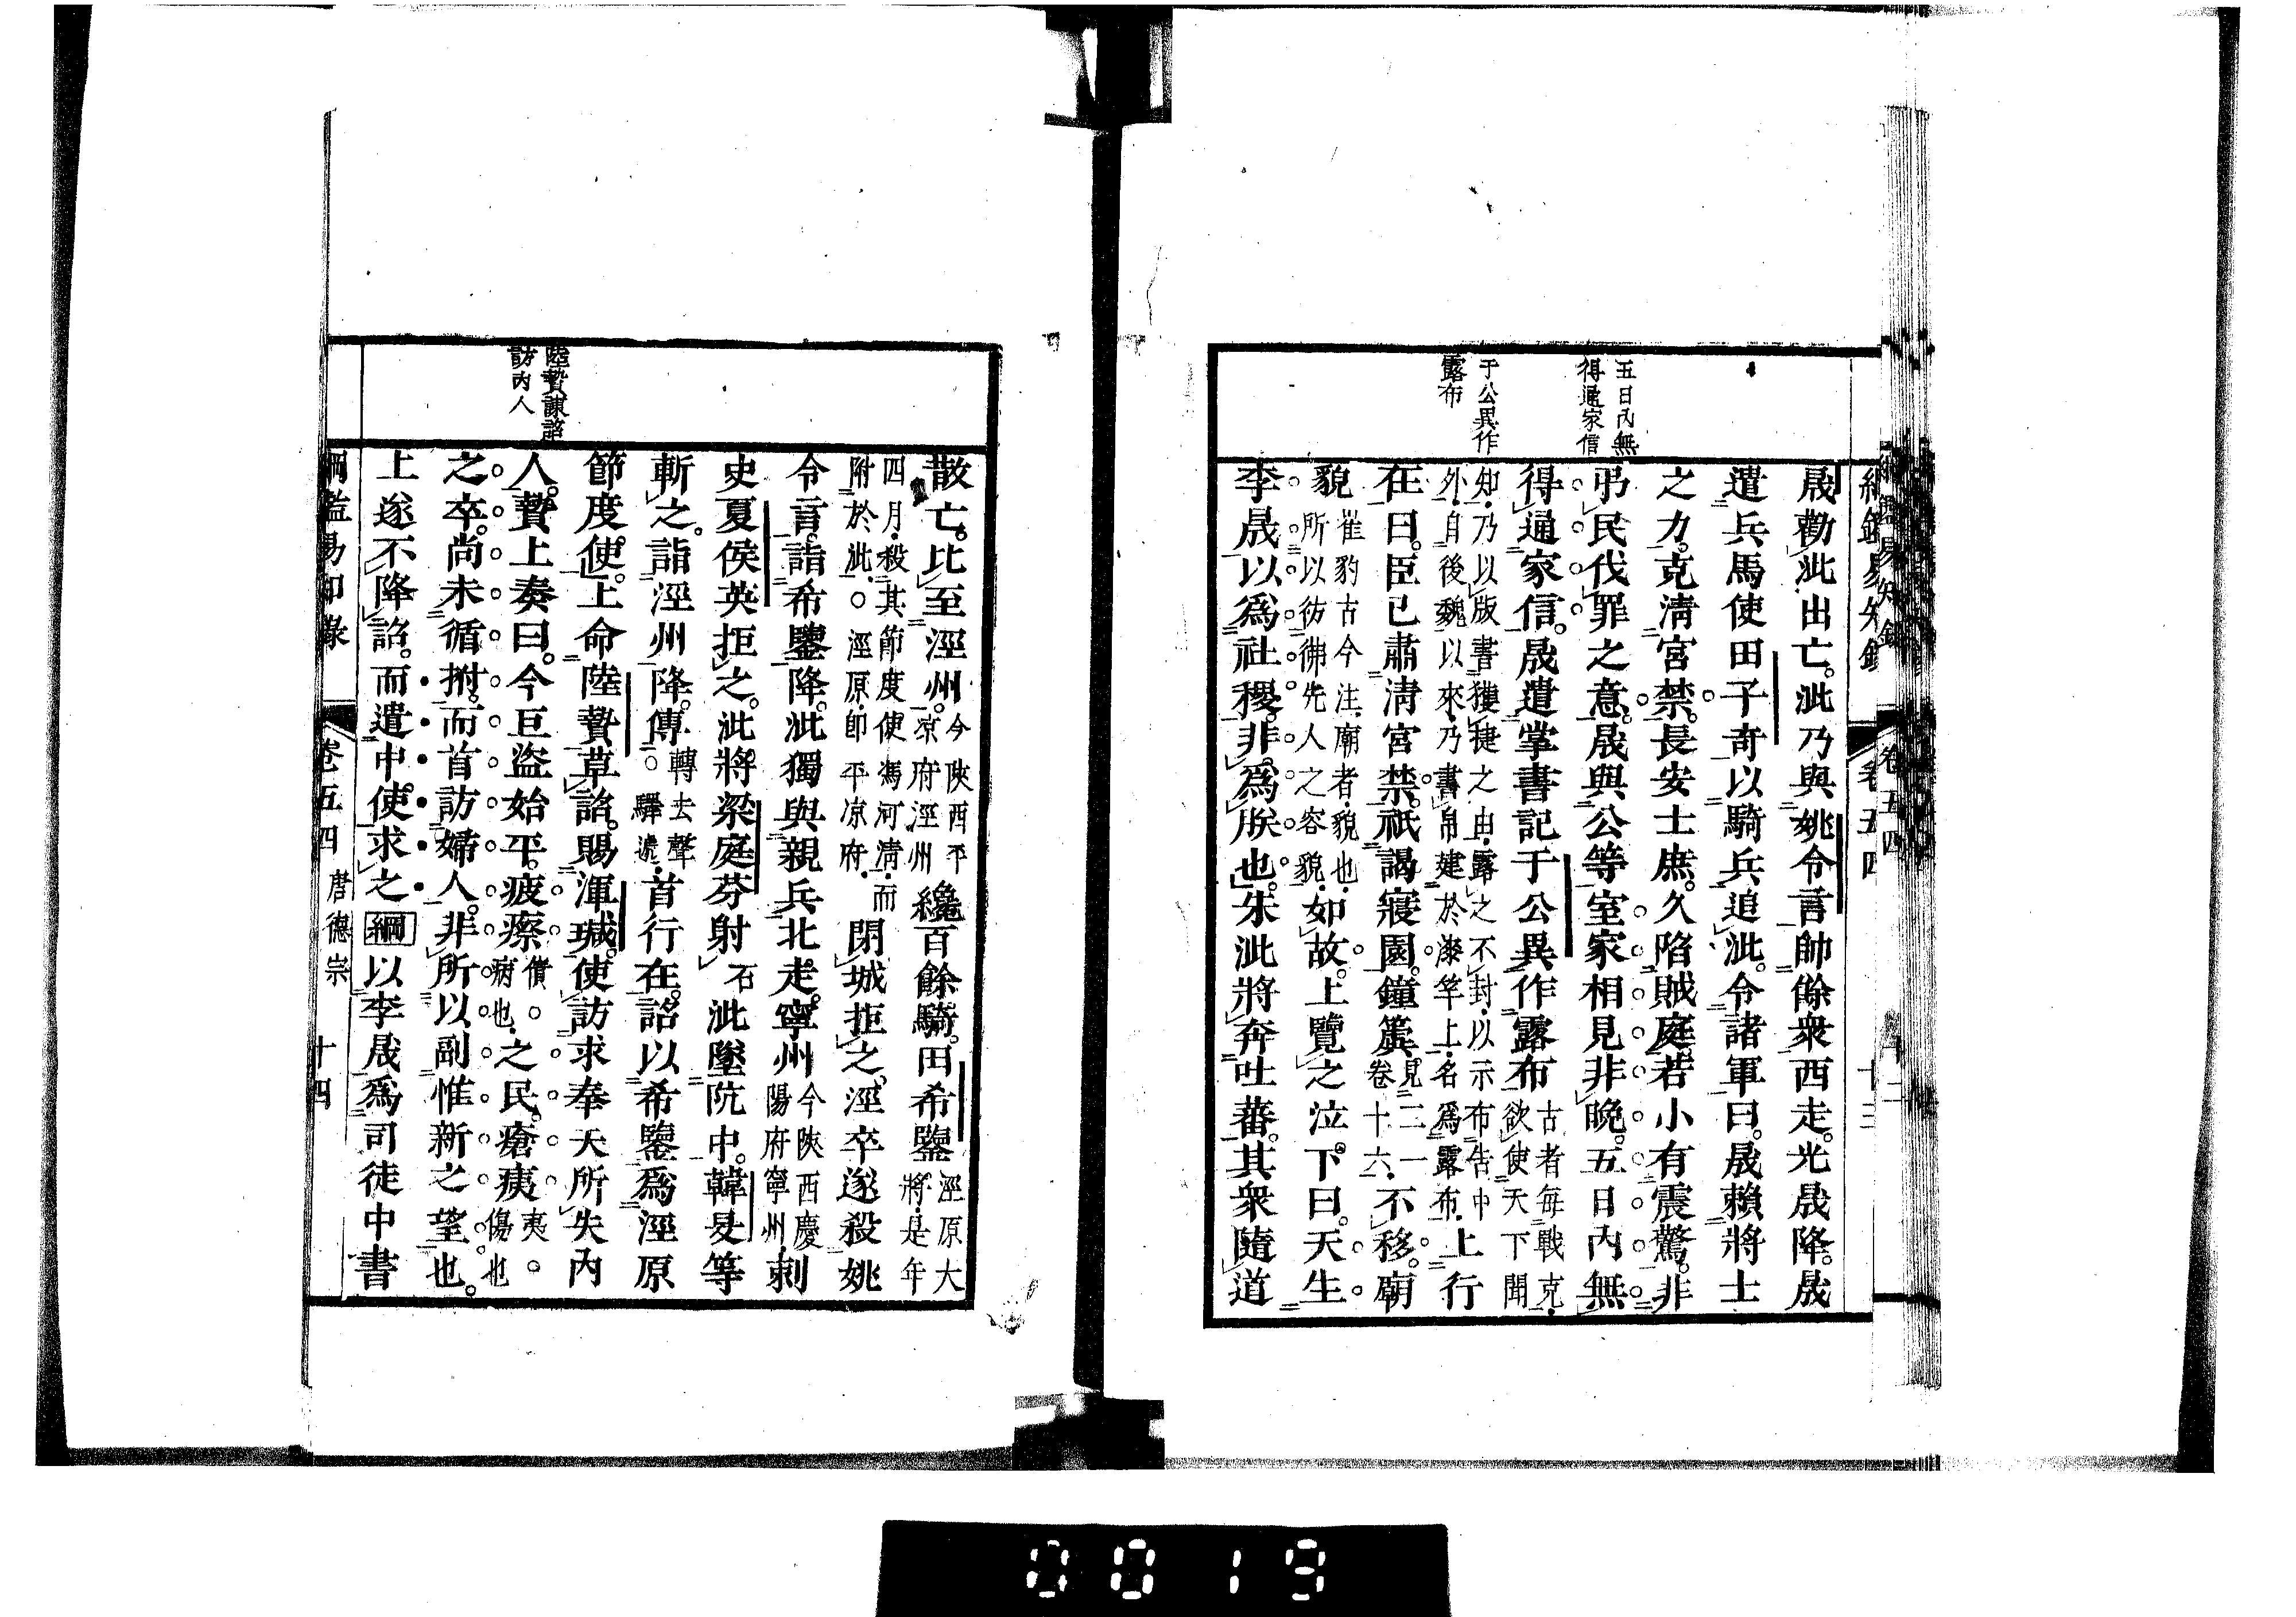 五日內無
得通家信
于公異作
露布
晟勸泚出亡。泚乃與姚令言帥餘衆西走。光晟降。晟
遣兵馬使田子奇以騎兵追泚。令諸軍曰。晟賴將士
之力。克淸宮禁。長安士庶。久陷賊庭。若小有震驚。非
弔民伐罪之意。晟與公等室家相見非晚。五日內無
得通家信。晟遣掌書記于公異作露布古者每戰克。欲使天下聞
知。乃以版書獲捷之由。露之不封。以示布告中
外。自後魏以來。乃書帛建於漆竿上。名爲露布。上行
在曰。臣已肅淸宮禁。祇謁寢園。鐘簴見二一卷十六。不移。廟
貌崔豹古今注。廟者。貌也。所以彷彿先人之容貌。如故。上覽之泣下。曰。天生
李晟。以爲社稷。非爲朕也。朱泚將奔吐蕃。其衆隨道
卷五四
十三
陸贄諫詔
訪內人
散亡。比至涇州。今陝西平凉府涇州纔百餘騎。田希鑒涇原大將。是年
四月。殺其節度使馮河淸。而附於泚。○涇原。卽平凉府。閉城拒之。涇卒遂殺姚
令言。詣希鑒降。泚獨與親兵北走。寧州今陝西慶陽府寧州。刺
史夏侯英拒之。泚將梁庭芬射石泚墜阬中。韓旻等
斬之。詣涇州降。傳轉去聲。○驛遞。首行在。詔以希鑒爲涇原
節度使。上命陸贄草詔。賜渾瑊。使訪求奉天所失內
人。贄上奏曰。今巨盜始平。疲瘵債。○病也。之民。瘡痍夷。○傷也
之卒。尚未循拊。而首訪婦人。非所以副惟新之望也。
上遂不降詔。而遣中使求之綱以李晟爲司徒中書
綱鑑易知錄
卷五四
唐德宗
十四
0019